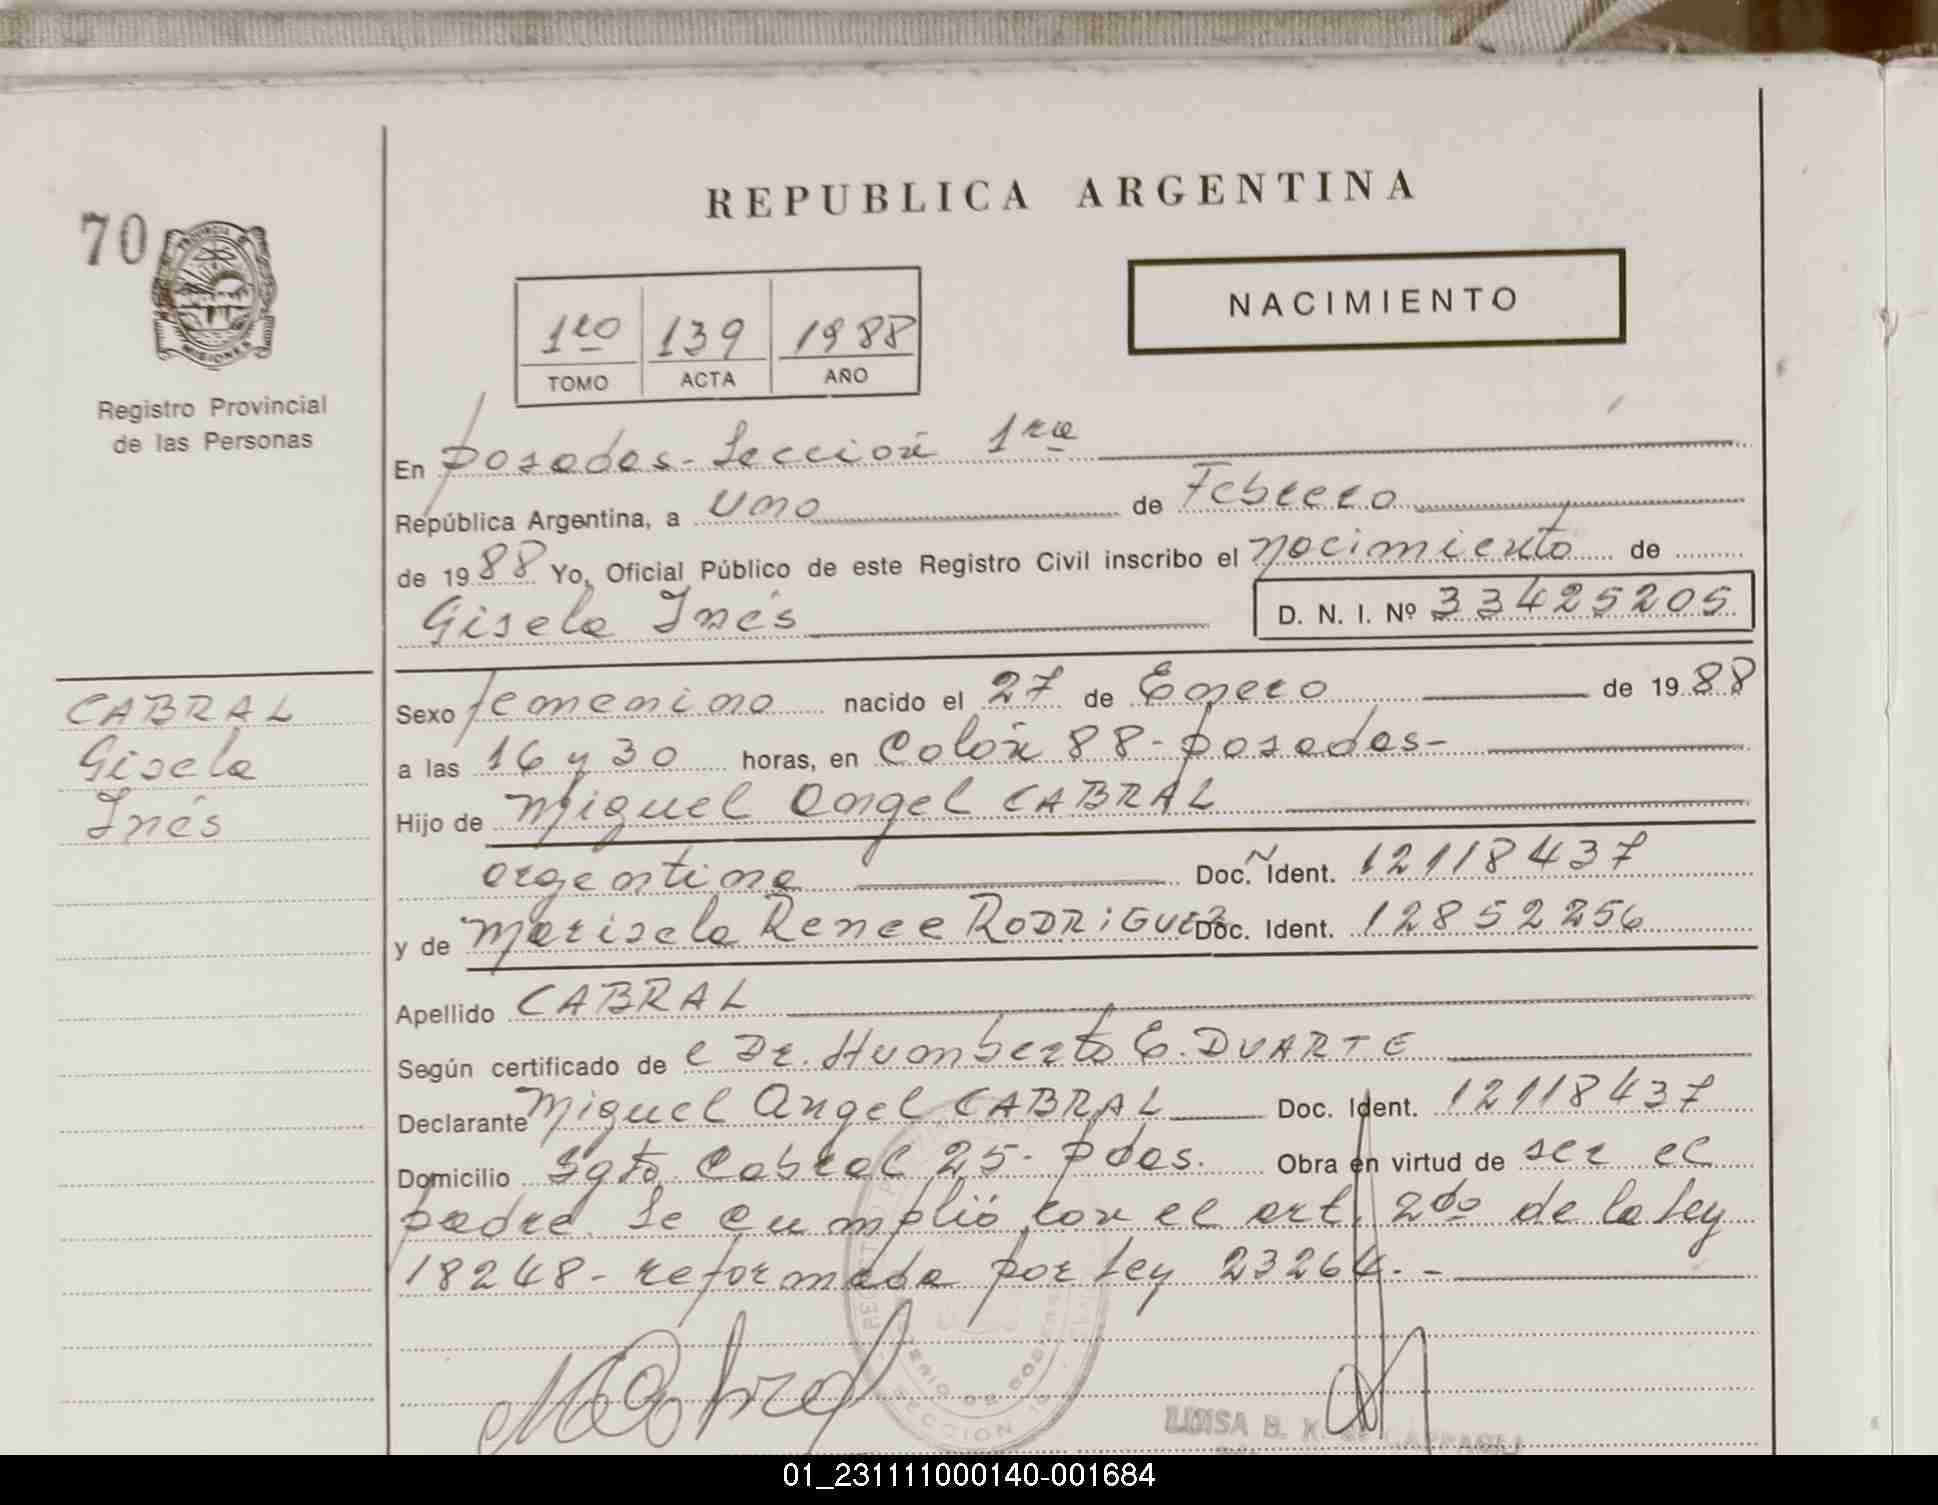 REPUBLICA ARGENTINA
70
PROVINCIA DE
MISIONES
Registro Provincial
de las Personas
NACIMIENTO
1ro 139 1988
TOMO ACTA AÑO
En Posadas - Sección 1ra
República Argentina, a uno de Febrero
de 1988 Yo, Oficial Público de este Registro Civil inscribo el nacimiento de
Gisela Inés D. N. I. Nº 33425205
CABRAL
Gisela
Inés
Sexo femenino nacido el 27 de Enero de 1988
a las 16 y 30 horas, en Colón 88 - Posadas -
Hijo de Miguel Angel CABRAL
argentina Doc. Ident. 12118437
y de Marisela Renee RODRIGUEZ Doc. Ident. 12852256
Apellido CABRAL
Según certificado de e Dr. Humberto E. DUARTE
Declarante Miguel Angel CABRAL Doc. Ident. 12118437
Domicilio Sgto. Cabral 25 - Pdas. Obra en virtud de ser el
padre. Se cumplió con el art. 2do de la Ley
18248 - reformada por Ley 23264. -
SECCION 1a
LUISA B. K.
01_231111000140-001684